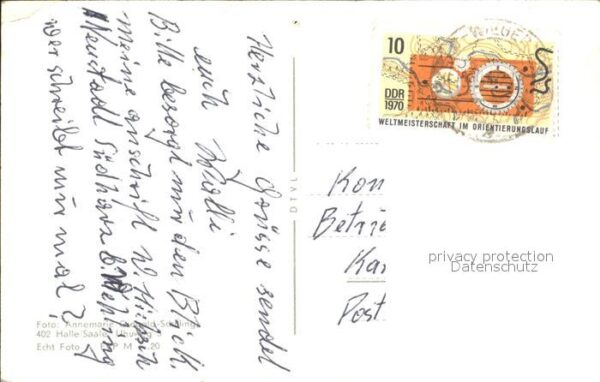 Herzliche Grüsse sendet
euch
Willi
Bitte besorgt mir den Block.
meine Anschrift W.
Neustadt Südharz b.
wer schreibt mir mal?
10
DDR
1970
WELTMEISTERSCHAFT IM ORIENTIERUNGSLAUF
Kon
Betrie
Kar
Post
privacy protection
Datenschutz
Foto: Annemarie
402 Halle/Saale,
Echt Foto